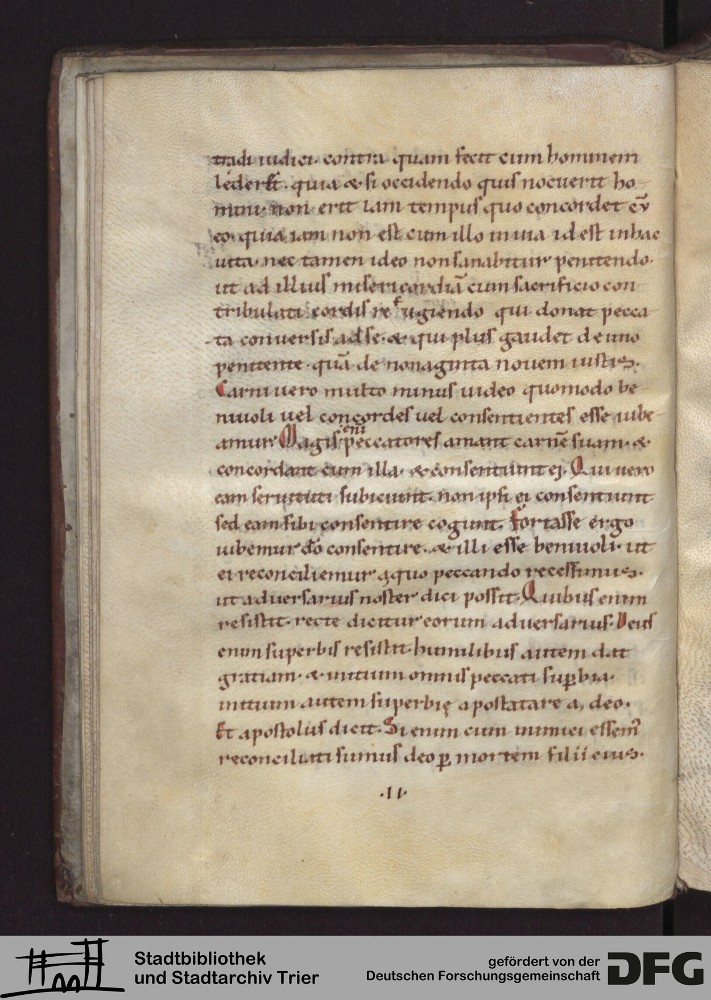 tradi iudici· contra quam fecit cum hominem
lederet· quia & si occidendo quis nocuerit ho
mini· non erit iam tempus quo concordet cū
eo· quia iam non est cum illo in uia id est in hac
uita· nec tamen ideo non sanabitur penitendo·
ut ad illius misericordiā cum sacrificio con
tribulati cordis refugiendo qui donat pecca
ta conuersis ad se· & qui plus gaudet de uno
penitente· quā de nonaginta nouem iustis·
Carni uero multo minus uideo quomodo be
niuoli uel concordes uel consentientes esse iube
amur· Magis eni peccatores amant carnē suam· &
concordant cum illa· & consentiunt ei· Qui uero
eam seruituti subiciunt· non ipsi ei consentiunt
sed eam sibi consentire cogunt· Fortasse ergo
iubemur dō consentire· & illi esse beniuoli· ut
ei reconciliemur a quo peccando recessimus·
ut aduersarius noster dici possit· Quibus enim
resistit· recte dicitur eorum aduersarius· Deus
enim superbis resistit· humilibus autem dat
gratiam· & initium omnis peccati sup̱bia·
initium autem superbię apostatare a deo·
Et apostolus dicit· Si enim cum inimici essem̃
reconciliati sumus deo p̱ mortem filii eius·
·II·
Stadtbibliothek
und Stadtarchiv Trier
gefördert von der
Deutschen Forschungsgemeinschaft
DFG